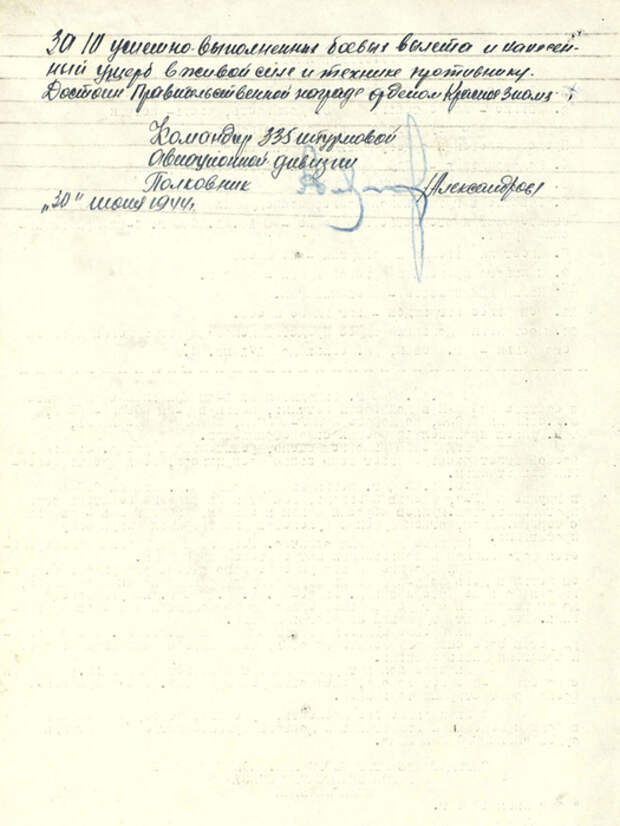 За 10 успешно-выполненных боевых вылета и нанесен-
ный ущерб в живой силе и технике противнику.
Достоин Правительственной награде орденом Красное Знамя
Командир 335 штурмовой
Авиационной дивизии
Полковник /Александров/
"30" июня 1944г.